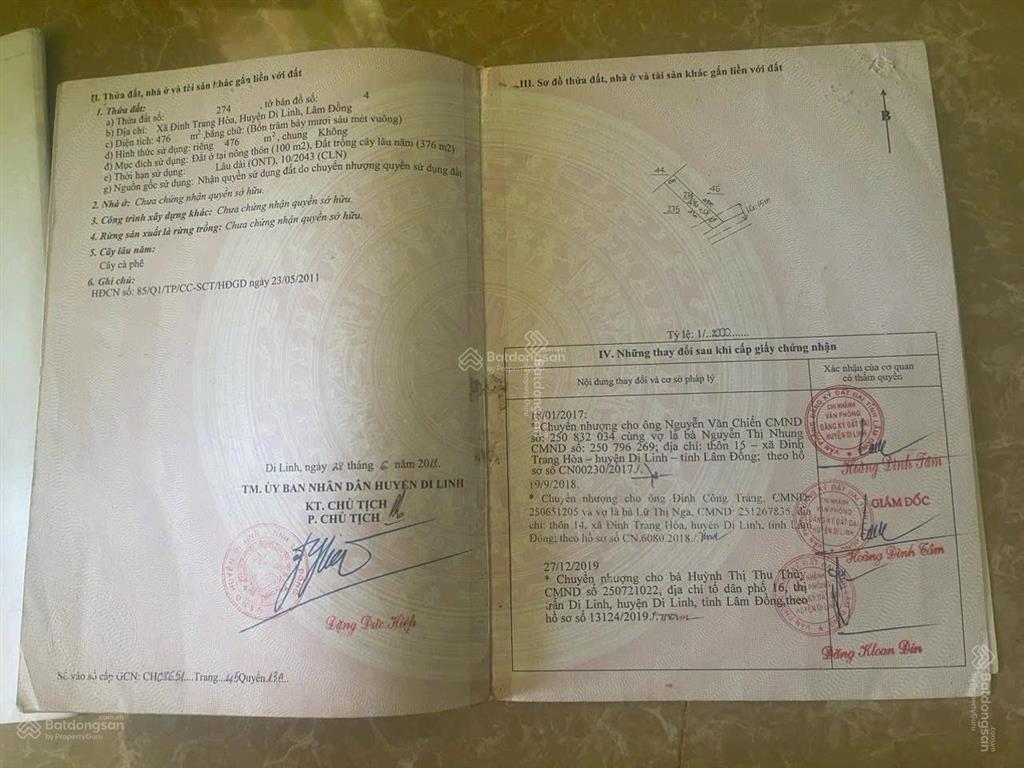 II. Thửa đất, nhà ở và tài sản khác gắn liền với đất
1. Thửa đất:
a) Thửa đất số: 274 , tờ bản đồ số: 4
b) Địa chỉ: Xã Đinh Trang Hòa, Huyện Di Linh, Lâm Đồng
c) Diện tích: 476 m², bằng chữ: (Bốn trăm bảy mươi sáu mét vuông)
d) Hình thức sử dụng: riêng 476 m², chung Không
đ) Mục đích sử dụng: Đất ở tại nông thôn (100 m2), Đất trồng cây lâu năm (376 m2)
e) Thời hạn sử dụng: Lâu dài (ONT), 10/2043 (CLN)
g) Nguồn gốc sử dụng: Nhận quyền sử dụng đất do chuyển nhượng quyền sử dụng đất
2. Nhà ở: Chưa chứng nhận quyền sở hữu.
3. Công trình xây dựng khác: Chưa chứng nhận quyền sở hữu.
4. Rừng sản xuất là rừng trồng: Chưa chứng nhận quyền sở hữu.
5. Cây lâu năm:
Cây cà phê
6. Ghi chú:
HĐCN số: 85/Q1/TP/CC-SCT/HĐGD ngày 23/05/2011
Di Linh, ngày 28 tháng 6 năm 2011
TM. ỦY BAN NHÂN DÂN HUYỆN DI LINH
KT. CHỦ TỊCH
P. CHỦ TỊCH
Đặng Đức Hiệp
Số vào sổ cấp GCN: CH08651....Trang..45Quyển.13A..
III. Sơ đồ thửa đất, nhà ở và tài sản khác gắn liền với đất
B
44
46
235
Tỷ lệ: 1/..2000......
IV. Những thay đổi sau khi cấp giấy chứng nhận
Nội dung thay đổi và cơ sở pháp lý
Xác nhận của cơ quan
có thẩm quyền
18/01/2017:
* Chuyển nhượng cho ông Nguyễn Văn Chiến CMND
số: 250 832 034 cùng vợ là bà Nguyễn Thị Nhung
CMND số: 250 796 269; địa chỉ: thôn 15 – xã Đinh
Trang Hòa – huyện Di Linh – tỉnh Lâm Đồng; theo hồ
sơ số CN00230/2017./.
CHI NHÁNH
VĂN PHÒNG
ĐĂNG KÝ ĐẤT ĐAI
HUYỆN DI LINH
Hoàng Đình Tâm
19/9/2018.
* Chuyển nhượng cho ông Đinh Công Tráng, CMND
250651205 và vợ là bà Lữ Thị Nga, CMND: 251267835, địa
chỉ: thôn 14, xã Đinh Trang Hòa, huyện Di Linh, tỉnh Lâm
Đồng; theo hồ sơ số CN.6080.2018./.
GIÁM ĐỐC
CHI NHÁNH
VĂN PHÒNG
ĐĂNG KÝ ĐẤT ĐAI
HUYỆN DI LINH
Hoàng Đình Tâm
27/12/2019
* Chuyển nhượng cho bà Huỳnh Thị Thu Thủy
CMND số 250721022, địa chỉ tổ dân phố 16, thị
trấn Di Linh, huyện Di Linh, tỉnh Lâm Đồng,theo
hồ sơ số 13124/2019./.
Đặng Kloan Din
Batdongsan
by PropertyGuru
Batdongsan
by PropertyGuru
Batdongsan